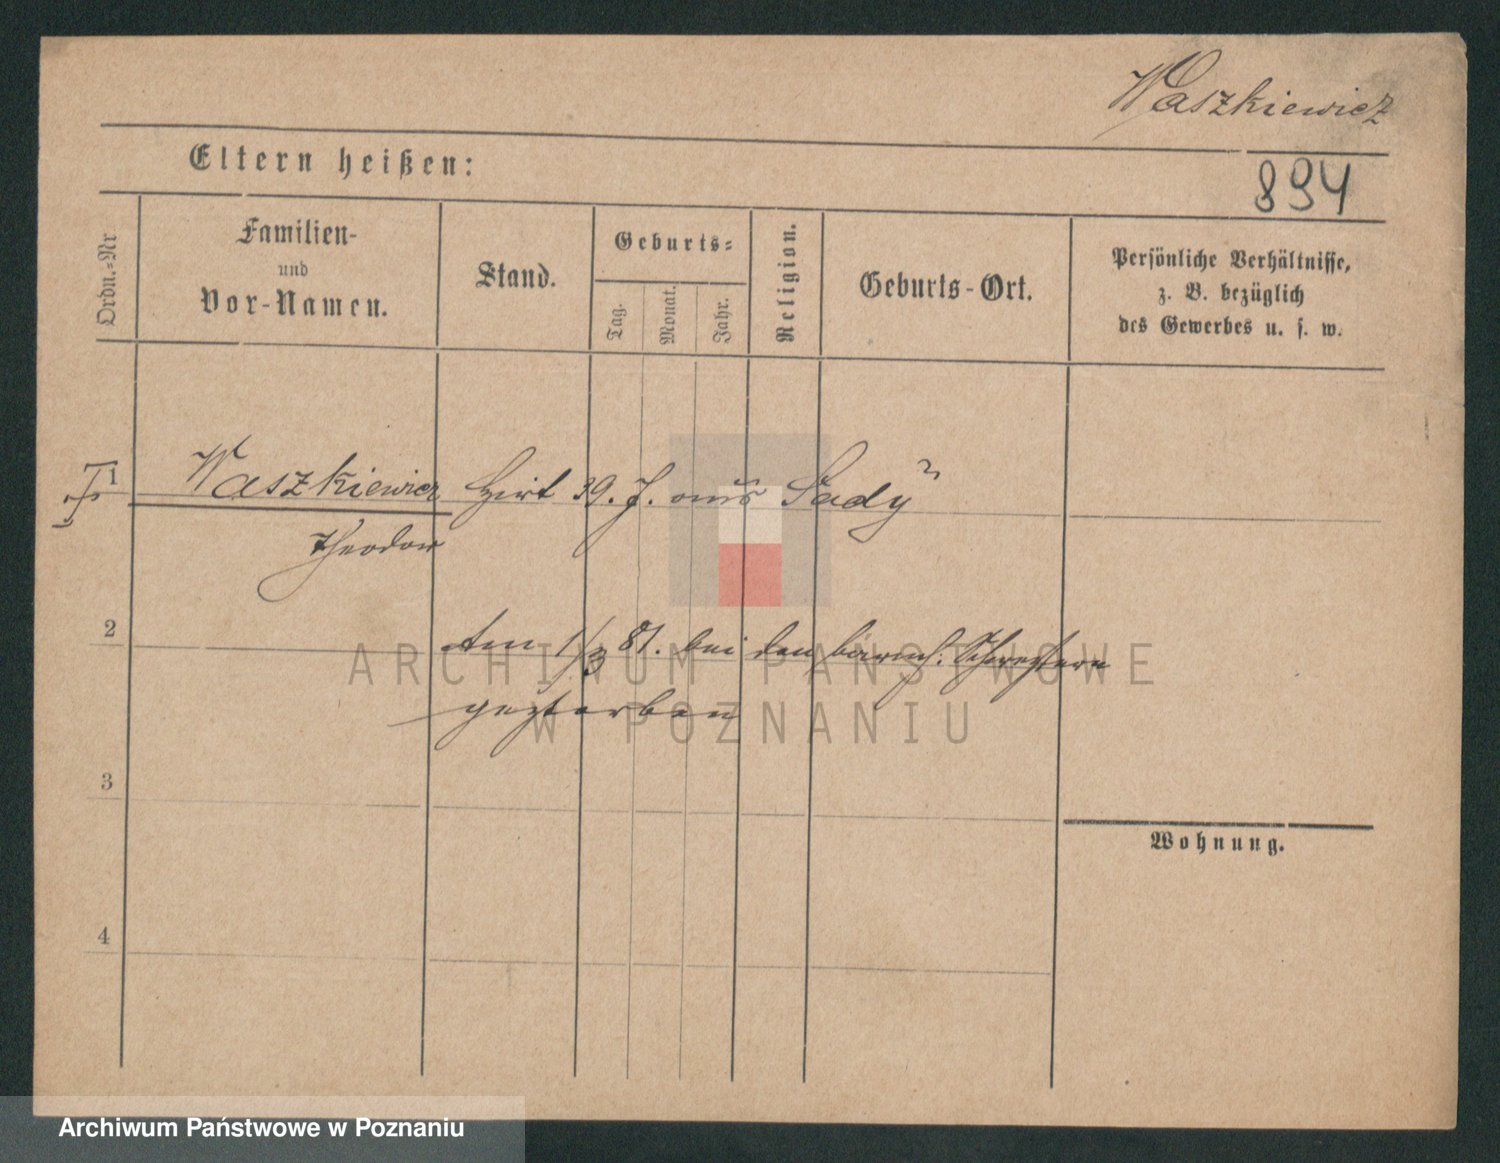 Waszkiewicz
Eltern heißen:
894
Ordn.-Nr
Familien-
und
Vor-Namen.
Stand.
Geburts-
Tag.
Monat.
Jahr.
Religion.
Geburts-Ort.
Persönliche Verhältnisse,
z. B. bezüglich
des Gewerbes u. s. w.
1
Waszkiewicz Hirt 39. J. aus Sady
Theodor
2
Am 1/3 81. bei den barmh: Schwestern
gestorben
3
Wohnung.
4
ARCHIWUM PAŃSTWOWE
W POZNANIU
Archiwum Państwowe w Poznaniu